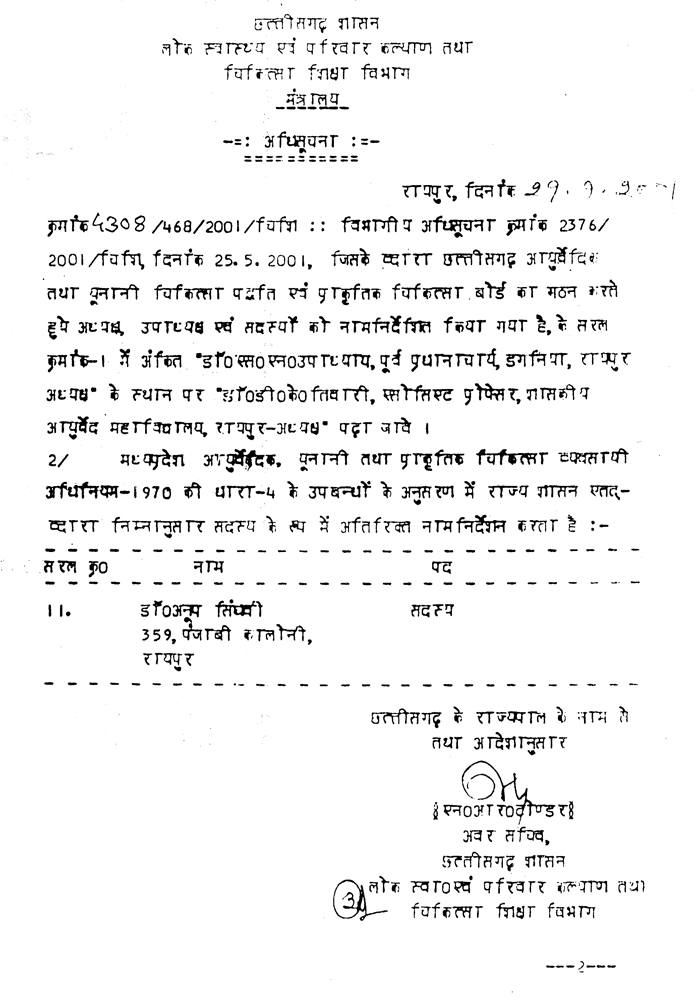 छत्तीसगढ़ शासन
लोक स्वास्थ्य एवं परिवार कल्याण तथा
चिकित्सा शिक्षा विभाग
मंत्रालय
-=: अधिसूचना :=-
===========
रायपुर, दिनांक 29.9.2001
क्रमांक 4308/468/2001/चिशि :: विभागीय अधिसूचना क्रमांक 2376/
2001/चिशि, दिनांक 25.5.2001, जिसके व्दारा छत्तीसगढ़ आयुर्वेदिक
तथा यूनानी चिकित्सा पद्धति एवं प्राकृतिक चिकित्सा बोर्ड का गठन करते
हुये अध्यक्ष, उपाध्यक्ष एवं सदस्यों को नामनिर्देशित किया गया है, के सरल
क्रमांक-1 में अंकित "डॉ0एस0एन0उपाध्याय, पूर्व प्रधानाचार्य, डगनिया, रायपुर
अध्यक्ष" के स्थान पर "डॉ0डी0के0तिवारी, एसोसिएट प्रोफेसर, शासकीय
आयुर्वेद महाविद्यालय, रायपुर-अध्यक्ष" पढ़ा जावे ।
2/ मध्यप्रदेश आयुर्वेदिक, यूनानी तथा प्राकृतिक चिकित्सा व्यवसायी
अधिनियम-1970 की धारा-4 के उपबन्धों के अनुसरण में राज्य शासन एतद्-
व्दारा निम्नानुसार सदस्य के रूप में अतिरिक्त नामनिर्देशन करता है :-
सरल क्र0 नाम पद
11. डॉ0अनूप सिंघवी सदस्य
359, पंजाबी कालोनी,
रायपुर
छत्तीसगढ़ के राज्यपाल के नाम से
तथा आदेशानुसार
एन0आर0
अवर सचिव,
छत्तीसगढ़ शासन
लोक स्वा0एवं परिवार कल्याण तथा
चिकित्सा शिक्षा विभाग
---2---